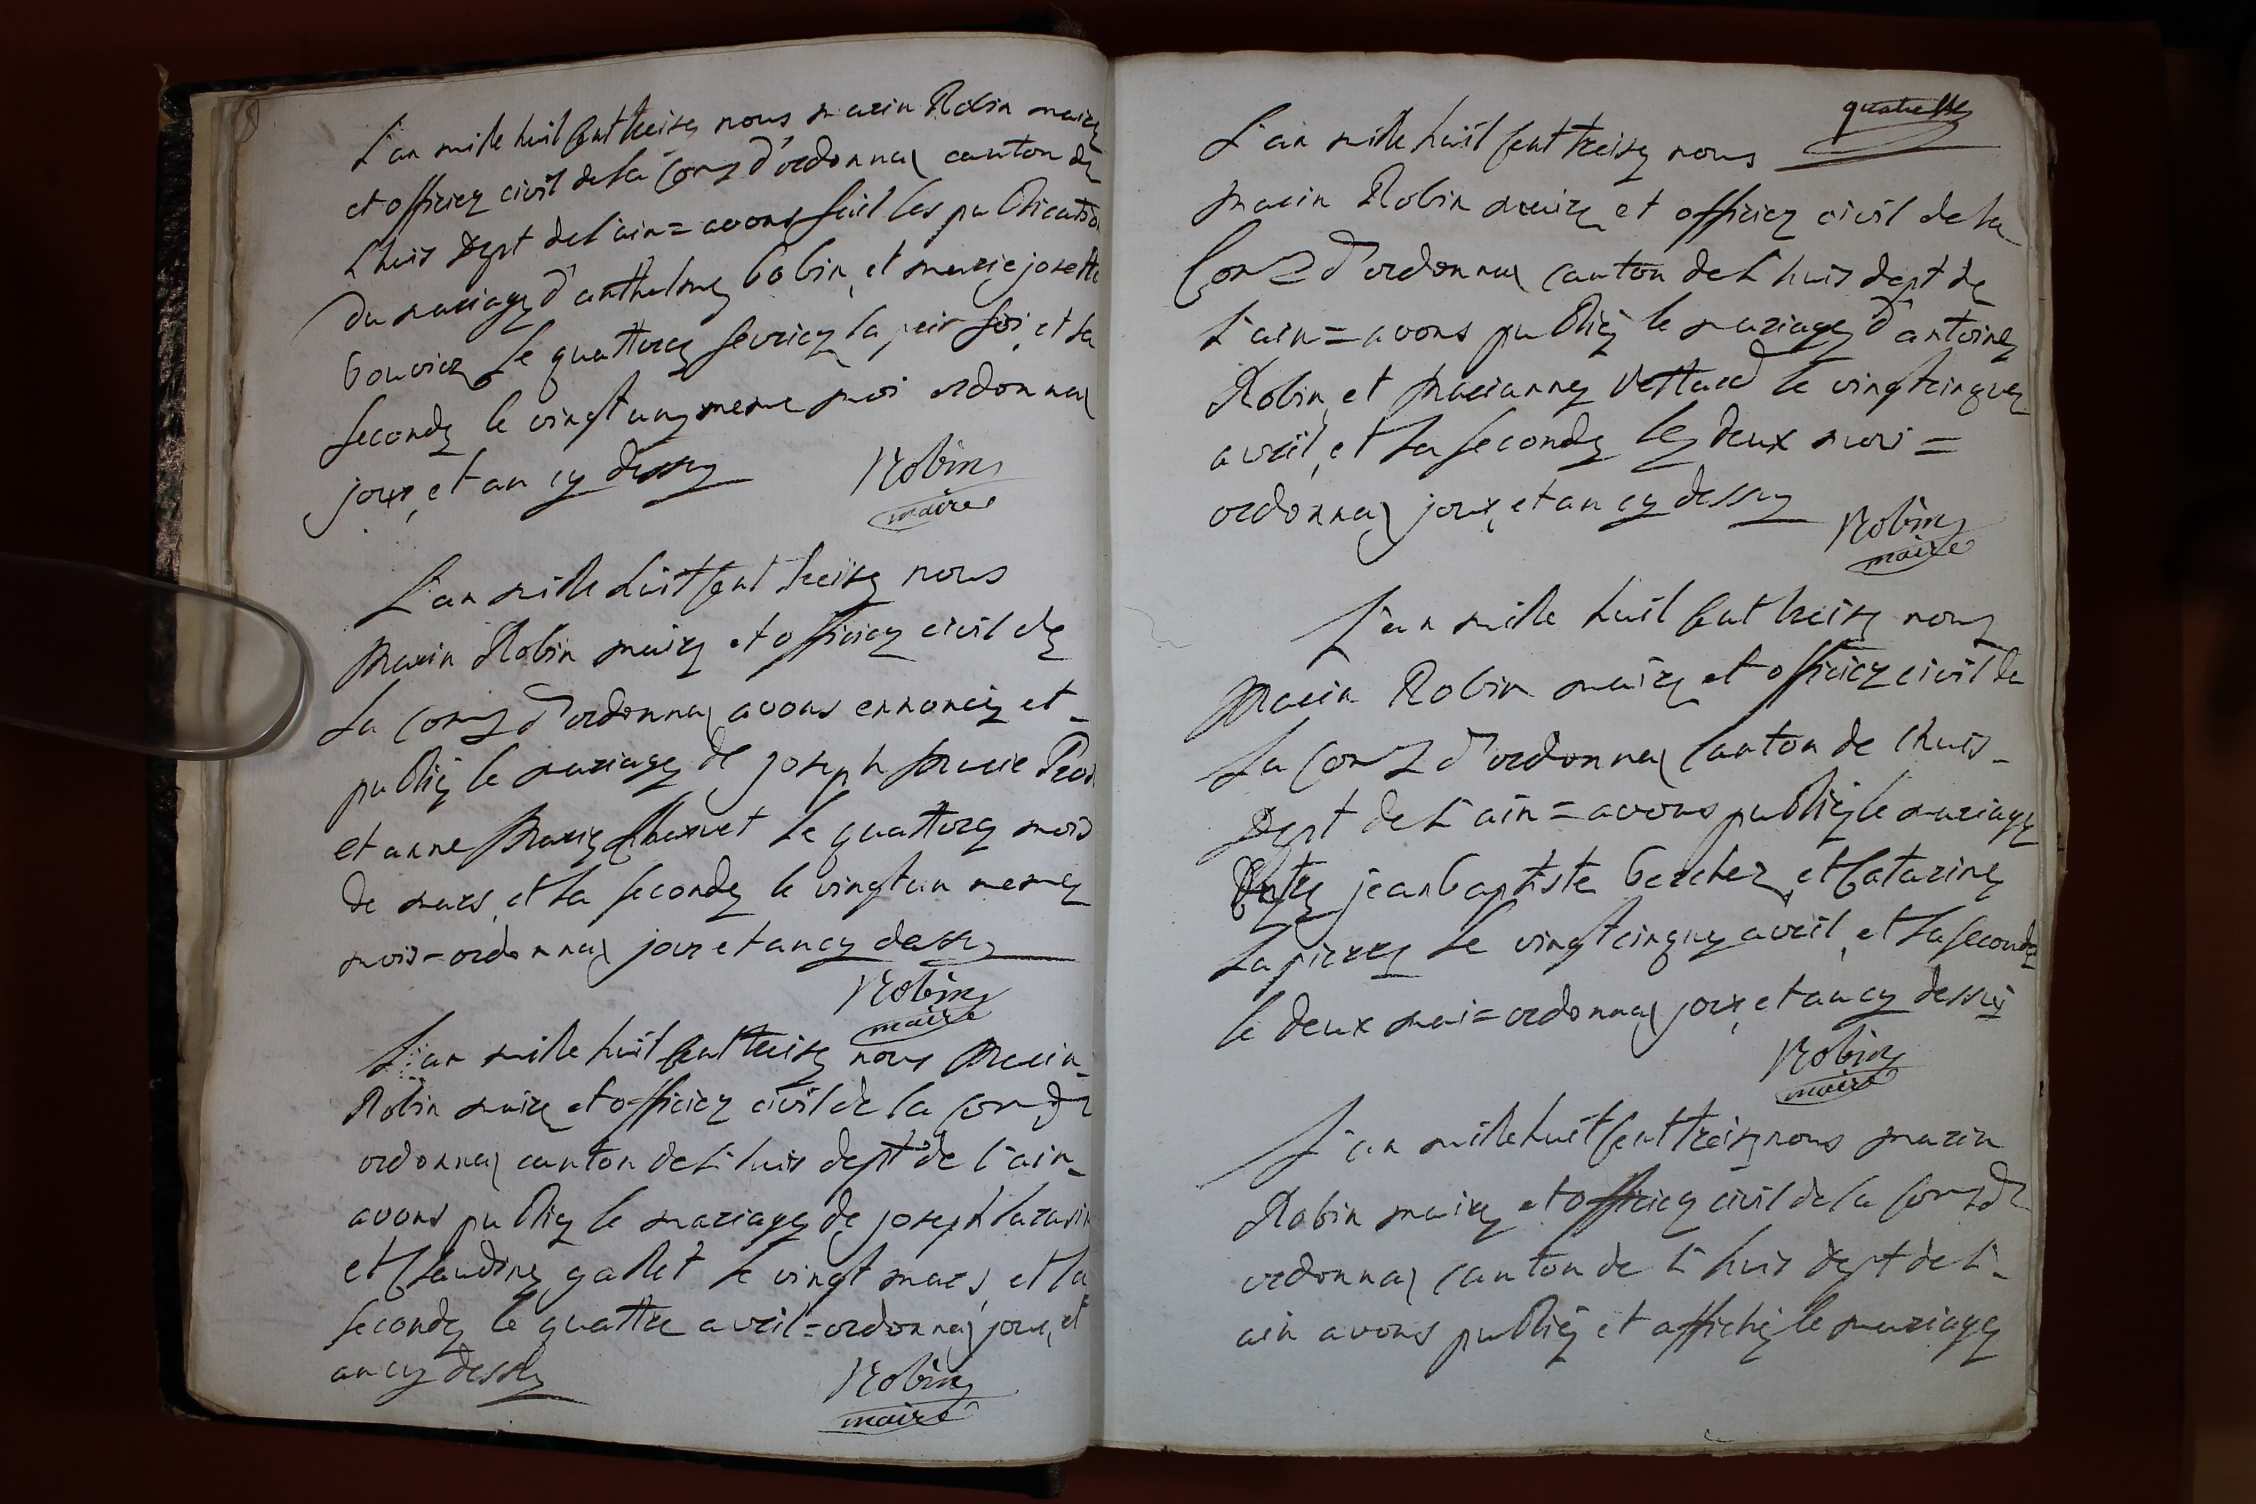 L'an mille huit cent treize nous marin Robin maire
et officier civil de la Com.e d'ordonnaz canton de
L'huis dept de L'ain = avons fait les publication
du mariage d'anthelme bobin, et marie josette
bouvier le quattorze fevrier la peir foi, et la
seconde le vingt un meme moi ordonnaz
jour, et an cy dessu
Robin
maire
L'an mille huit cent treize nous
marin Robin maire et officier civil de
La com.e d'ordonnaz avons ennoncé et
publié le mariage de joseph marie
et anne marie Charvet le quattorze mois
de mars, et la seconde le vingt un meme
mois = ordonnaz jour et an cy dessu
Robin
maire
L'an mille huit cent treize nous marin
Robin maire et officier civil de la com de
ordonnaz canton de L'huis dept de l'ain
avons publié le mariage de joseph
et Claudine gallet le vingt mars, et la
seconde le quattre avril = ordonnaz jour, et
an cy dessu
Robin
maire
quatre
L'an mille huit cent treize nous
marin Robin maire et officier civil de la
Com.e d'ordonnaz canton de L'huis dept de
L'ain = avons publié le mariage d'antoine
Robin, et marianne Vettard le vingt cinque
avril, et la seconde le deux mai =
ordonnaz jour, et an cy dessu
Robin
maire
L'an mille huit cent treize nous
marin Robin maire et officier civil de
La Com.e d'ordonnaz canton de L'huis
Dept de L'ain = avons publié le mariage
Entre jean baptiste bercher, et Catarine
Lapierre le vingt cinque avril, et la seconde
le deux mai = ordonnaz jour, et an cy dessu
Robin
maire
L'an mille huit cent treize nous marin
Robin maire et officier civil de la com de
ordonnaz canton de L'huis Dept de L'
ain avons publié et affiché le mariage